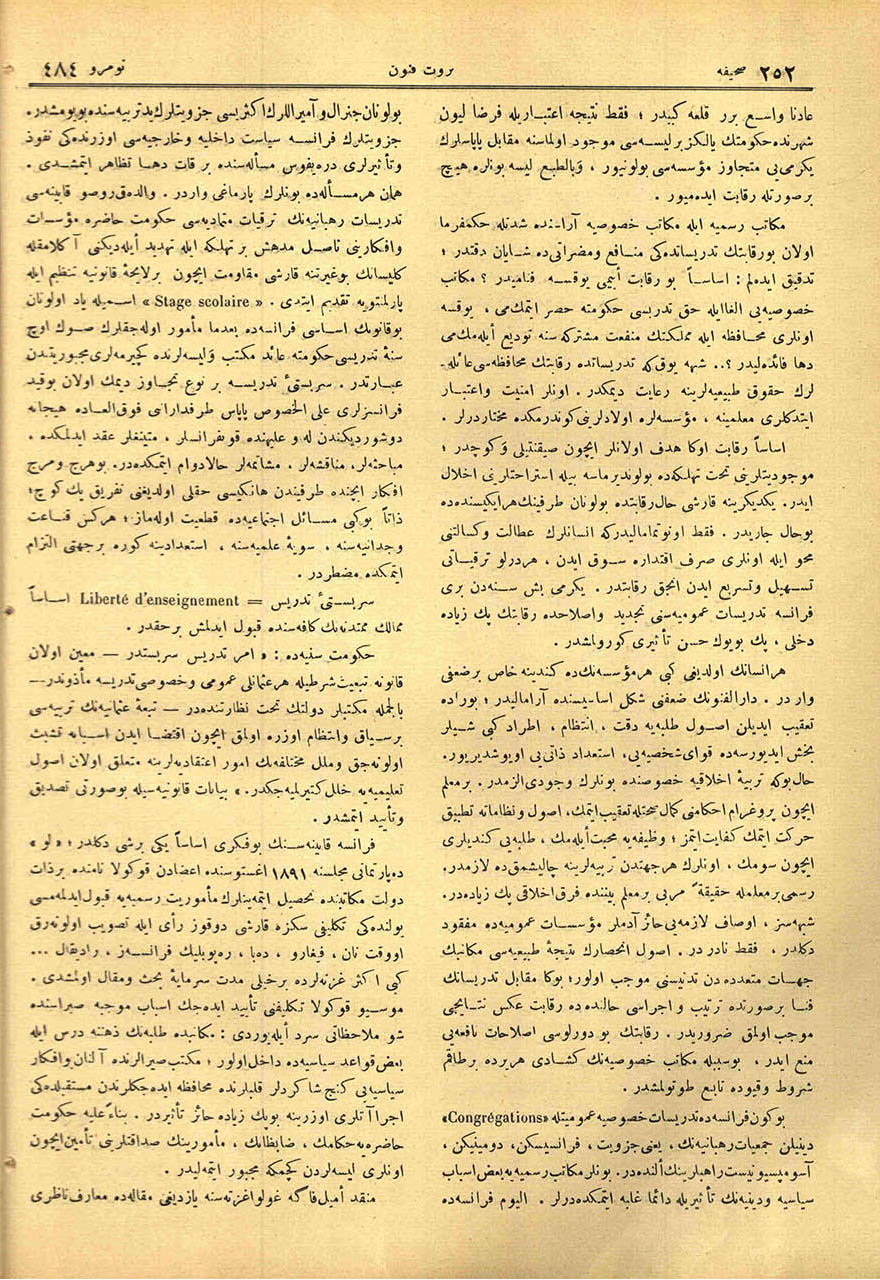 ٢٥٢ صحیفه
ثروت فنون
نومرو ٤٨٤
عادتا واسع برر قلعه کبیدر ؛ فقط نتیجه اعتباریله فرضا لیون
شهرنده حکومتك یالکز بر لیسه‌سی موجود اولماسنه مقابل پاپاسلرك
یکرمی‌یی متجاوز مؤسسه‌سی بولونیور ، وَبالطبع لیسه بونلره هیچ
برصورتله رقابت ایده‌میور .
مکاتب رسمیه ایله مکاتب خصوصیه آراسنده شدتله حکمفرما
اولان بورقابتك تدریساتده‌کی منافع ومضراتی‌ده شایان دقتدر ؛
تدقیق ایده‌لم : اساساً بو رقابت أییمی یوقسه فنامیدر ؟ مکاتب
خصوصیه‌یی الغاایله حق تدریسی حکومته حصر ایتمك‌می ، یوقسه
اونلری محافظه ایله مملکتك منفعت مشترکه‌سنه تودیع أیله‌مك‌می
دها فائده‌لیدر ؟.. شبهه یوق‌که تدریساتده رقابتك محافظه‌سی عائله‌-
لرك حقوق طبیعیه‌لرینه رعایت دیمکدر . اونلر امنیت واعتبار
ایتدکلری معلمینه ، مؤسسه‌لره اولادلرینی کوندرمکده مختاردرلر .
اساساً رقابت اوکا هدف اولانلر ایچون صیقنتیلی وَکوجدر ؛
موجودیتلرینی تحت تهلکه‌ده بولوندیرماسه بیله استراحتلرینی اخلال
ایدر . یکدیکرینه قارشی حال رقابتده بولونان طرفینك هرایکیسنده‌ده
بوحال جاریدر . فقط اونوتمامالیدرکه انسانلرك عطالت وکسالتنی
محو ایله اونلری صرف اقتداره سوق ایدن ، هردرلو ترقیاتی
تسهیل وتسریع ایدن انجق رقابتدر . یکرمی بش سنه‌دن بری
فرانسه تدریسات عمومیه‌سنی تجدید واصلاحده رقابتك پك زیاده
دخلی ، پك بویوك حسن تأثیری کورولمشدر .
هر انسانك اولدیغی کبی هرمؤسسه‌نك‌ده کندینه خاص برضعفی
واردر . دارالفنونك ضعفنی شکل اساسیسنده آرامالیدر ؛ بوراده
تعقیب ایدیلن اصول طلبه‌یه دقت ، انتظام ، اطراد کبی شیلر
بخش ایدیورسه‌ده قوای شخصیه‌یی، استعداد ذاتی‌یی اویوشدیریور.
حال بوکه تربیهٔ اخلاقیه خصوصنده بونلرك وجودی الزمدر . برمعلم
ایچون پروغرام احکامنی کمال صحتله تعقیب ایتمك، اصول ونظاماته تطبیق
حرکت ایتمك کفایت ایتمز ؛ وظیفه‌یه محبت أیله‌مك ، طلبه‌یی کندیلری
ایچون سومك ، اونلرك هرجهتدن تربیه‌لرینه چالیشمق‌ده لازمدر.
رسمی برمعلمله حقیقةً مربی برمعلم بیننده فرق اخلاقی پك زیاده‌در.
شبهه‌سز ، اوصاف لازمه‌یی حائز آدملر مؤسسات عمومیه‌ده مفقود
دکلدر ، فقط نادر در . اصول انحصارك نتیجهٔ طبیعیه‌سی مکاتبك
جهات متعدده‌دن تدنیسنی موجب اولور؛ بوکا مقابل تدریساتك
فنا برصورتده ترتیب و اجراسی حالنده‌ده رقابت عکس نتایجی
موجب اولمق ضروریدر . رقابتك بو درلوسی اصلاحات نافعه‌یی
منع ایدر ، بوسببله مکاتب خصوصیه‌نك کشادی هریرده برطاقم
شروط وقیوده تابع طوتولمشدر .
بوکون فرانسه‌ده تدریسات خصوصیه عمومیتله «Congrégations»
دینیلن جمعیات رهبانیه‌نك ، یعنی جزویت ، فرانسیسکن ، دومینیکن ،
آسومپسیونیست راهبلرینك ألنده‌در. بونلر مکاتب رسمیه‌یه بعض اسباب
سیاسیه ودینیه‌نك تأثیریله دائما غلبه ایتمکده‌درلر . الیوم فرانسه‌ده
بولونان جنرال و آمیراللرك اکثریسی جزویتلرك ید تربیه‌سنده بویومشدر.
جزویتلرك فرانسه سیاست داخلیه وخارجیه‌سی اوزرنده‌کی نفوذ
وتأثیرلری دره‌یفوس مسأله‌سنده بر قات دها تظاهر ایتمشدی .
همان هرمسأله‌ده بونلرك پارماغی واردر . والده‌ق روسو قابینه‌سی
تدریسات رهبانیه‌نك ترقیات متمادیه‌سی حکومت حاضره مؤسسات
وافکارینی ناصل مدهش بر تهلکه ایله تهدید أیله‌دیکنی آکلامقله
کلیسانك بوغیرتنه قارشی مقاومت ایچون برلایحهٔ قانونیه تنظیم ایله
پارلمنتویه تقدیم ایتدی . « Stage scolaire » اسمیله یاد اولونان
بوقانونك اساسی فرانسه‌ده بعدما مأمور اوله‌جقلرك صوك اوچ
سنهٔ تدریسی حکومته عائد مکتب وَلیسه‌لرنده کچیرمه‌لری مجبوریتدن
عبارتدر . سربستیٔ تدریسه بر نوع تجاوز دیمك اولان بوقید
فرانسزلری علی الخصوص پاپاس طرفدارانی فوق‌العاده هیجانه
دوشوردیکندن له و علیهنده قونفرانسلر ، متینغلر عقد ایدلمکده ،
مباحثه‌لر، مناقشه‌لر ، مشاتمه‌لر حالا دوام ایتمکده‌در. بوهرج ومرج
افکار ایچنده طرفیندن هانکیسی حقلی اولدیغنی تفریق پك کوچ؛
ذاتاً بوکبی مسائل اجتماعیه‌ده قطعیت اوله‌ماز ؛ هرکس قناعت
وجدانیه‌سنه ، سویهٔ علمیه‌سنه ، استعدادینه کوره برجهتی التزام
ایتمکده مضطر در .
سربستیٔ تدریس = Liberté d'enseignement اساساً
ممالك متمدنه‌نك کافه‌سنده قبول ایدلمش برحقدر .
حکومت سنیه‌ده : « امر تدریس سربستدر — معین اولان
قانونه تبعیت شرطیله هرعثمانلی عمومی وخصوصی تدریسه مأذوندر—
بالجمله مکتبلر دولتك تحت نظارتنده‌در — تبعهٔ عثمانیه‌نك تربیه‌سی
برسیاق وانتظام اوزره اولمق ایچون اقتضا ایدن اسبابه تشبث
اولونه‌جق وملل مختلفه‌نك امور اعتقادیه‌لرینه متعلق اولان اصول
تعلیمیه‌یه خلل کتیرلمیه‌جکدر. » بیانات قانونیه‌سیله بوصورتی تصدیق
وتأیید ایتمشدر .
فرانسه قابینه‌سنك بوفکری اساساً یکی برشی دکلدر؛ «لو»
ده‌پارتمانی مجلسنه ١٨٩١ اغستوسنده اعضادن قوکولا نامنده برذات
دولت مکاتبنده تحصیل ایتمه‌ینلرك مأموریت رسمیه‌یه قبول ایدلمه‌می
یولنده‌کی تکلیفنی سکزه قارشی دوقوز رأی ایله تصویب اولونه‌رق
اووقت تان ، فیغارو ، ده‌با ، ره‌پوبلیك فرانسه‌ز ، رادیقال ...
کبی اکثر غزته‌لرده برخیلی مدت سرمایهٔ بحث ومقال اولمشدی .
موسیو قوکولا تکلیفنی تأیید ایده‌جك اسباب موجبه صیراسنده
شو ملاحظاتی سرد أیله‌یوردی : مکاتبده طلبه‌نك ذهننه درس ایله
بعض قواعد سیاسیه‌ده داخل اولور ؛ مکتب صیرالرنده آلنان وافکار
سیاسیه‌یی کنج شاکردلر قلبلرنده محافظه ایده‌جکلرندن مستقبلده‌کی
اجراآتلری اوزرینه بونك زیاده حائز تأثیردر . بناءً علیه حکومت
حاضره‌یه حکامك ، ضابطانك ، مأمورینك صداقتلرینی تأمین ایچون
اونلری لیسه‌لردن کچمکه مجبور ایتمه‌لیدر .
منقد أمیل فاگه غولوا غزته‌سنه یازدیغی مقاله‌ده معارف ناظری